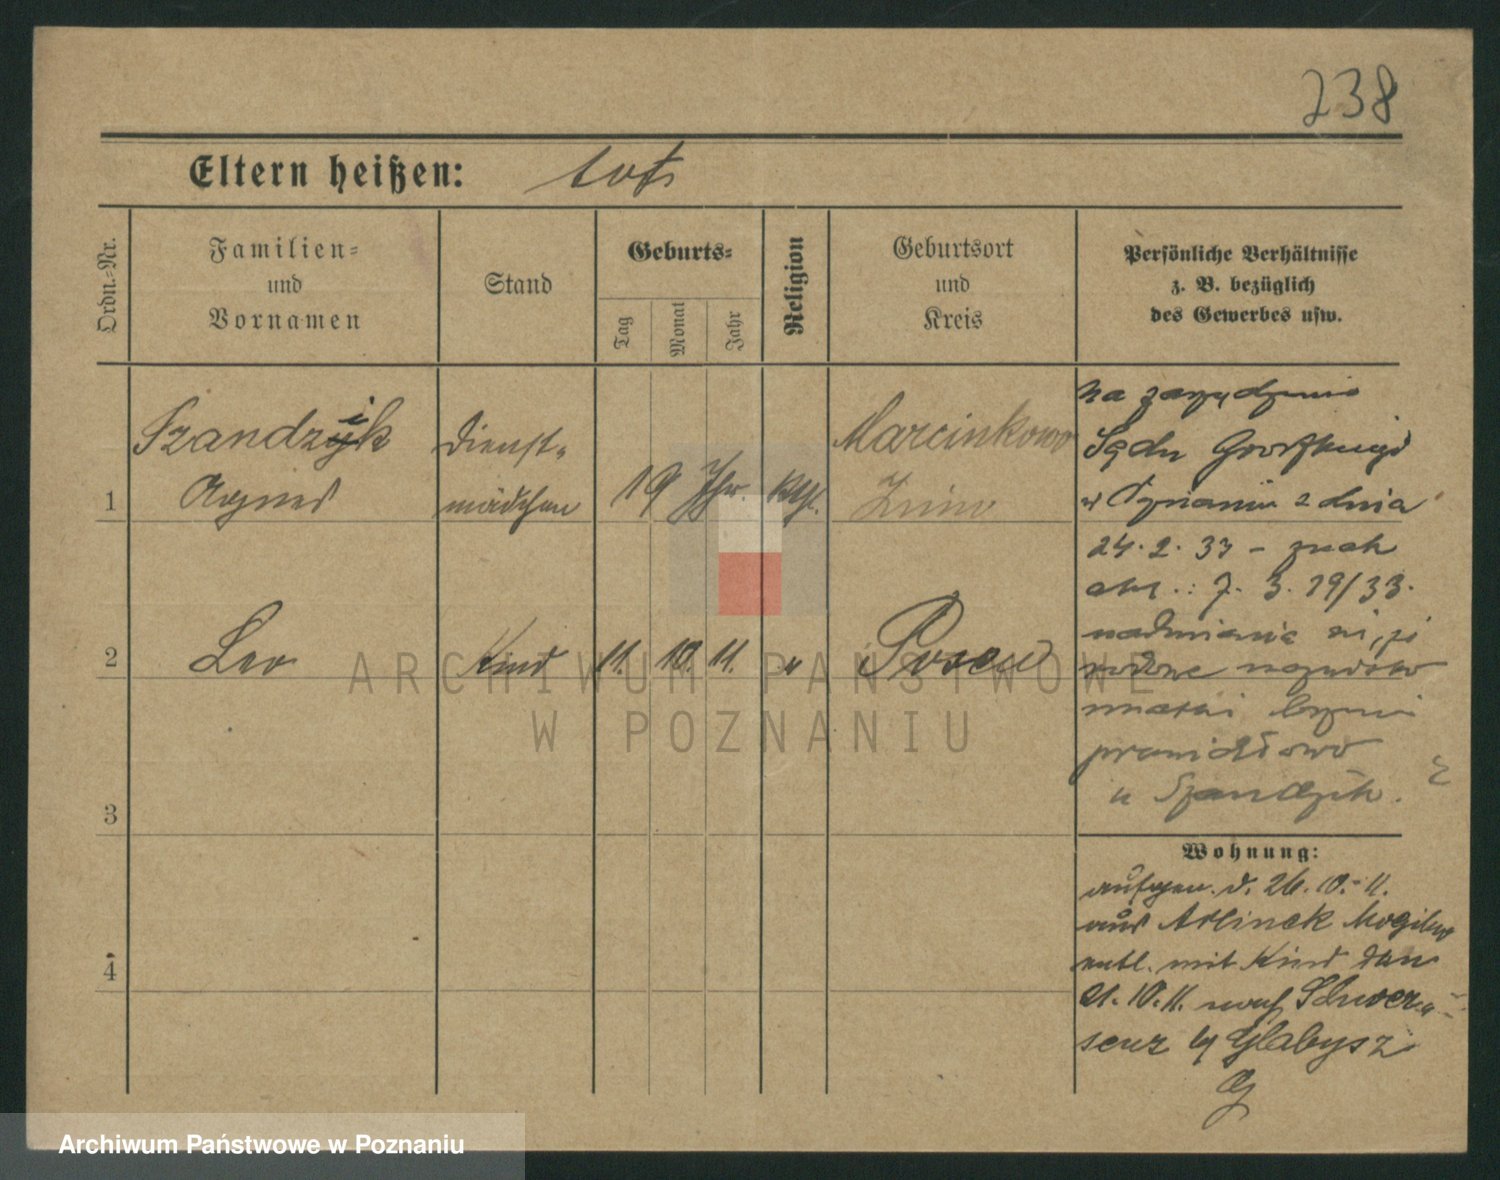 238
Eltern heißen: tot
Ordn.-Nr.
Familien-
und
Vornamen
Stand
Geburts-
Tag
Monat
Jahr
Religion
Geburtsort
und
Kreis
Persönliche Verhältnisse
z. B. bezüglich
des Gewerbes usw.
1
Szandzik
Agnes
Dienst-
mädchen
19 Jhr.
kath.
Marcinkowo
Znin
Na zarządzenie
Sądu Grodzkiego
w Poznaniu z dnia
24.2.33 - znak
akt.: 7. 3. 19/33.
nadmienia się, że
nazwisko
matki brzmi
prawidłowo
Szandzik.
2
Leo
Kind
11. 10. 11.
"
Posen
3
4
Wohnung:
aufgen. d. 26.10.11.
aus Mogilno
entl. mit Kind den
21.10.11. nach Schwer-
senz Glabysz
ARCHIWUM PAŃSTWOWE
W POZNANIU
Archiwum Państwowe w Poznaniu